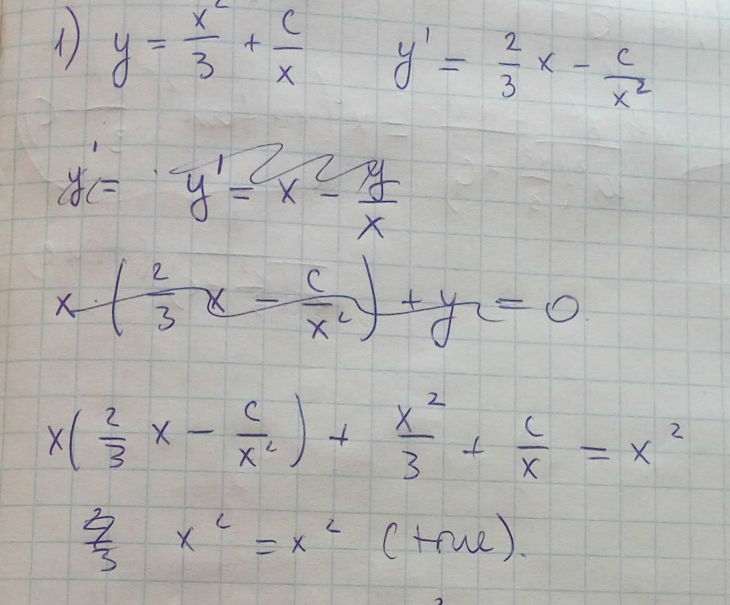 1) y = x²/3 + c/x   y' = 2/3 x - c/x²
y' = y' = x - y/x
x · (2/3 x - c/x²) + y = 0
x(2/3 x - c/x²) + x²/3 + c/x = x²
3/3 x² = x² (true).